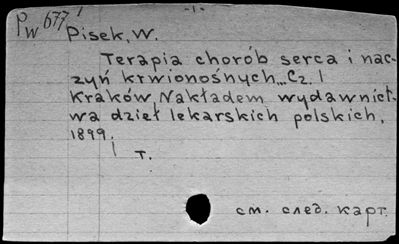 - 1 -
Pw 677
Pisek, W.
Terapia chorób serca i nac-
zyń krwionośnych... Cz. I
Kraków, Nakładem wydawnict-
wa dzieł lekarskich polskich,
1899.
1 т.
см. след. карт.